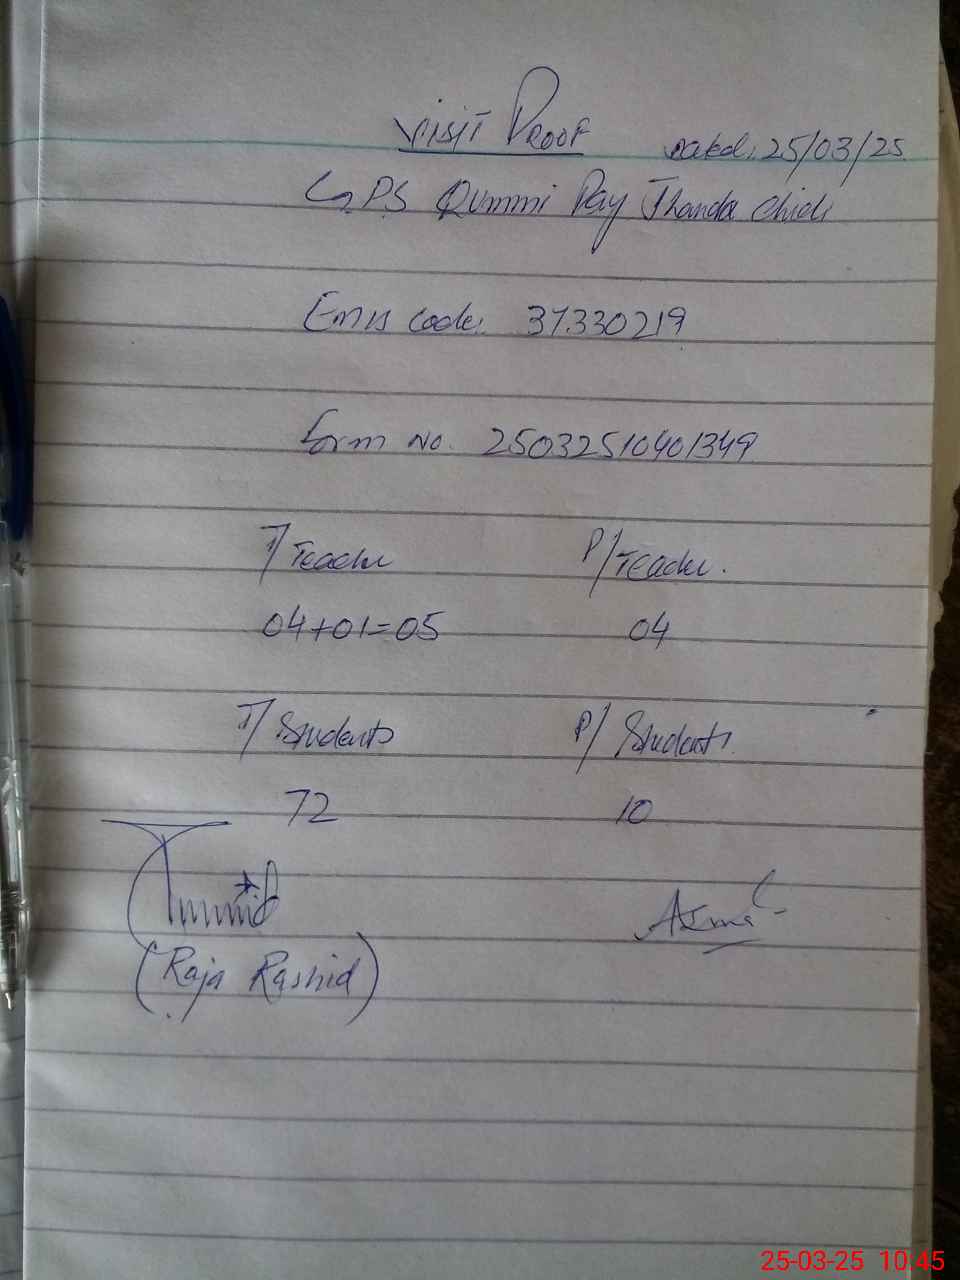 Visit Proof Dated: 25/03/25
GPS Qummi Pay Thanda Chidi
Emis code: 37330219
Form No. 25032510401349
T/Teacher P/Teacher.
04+01=05 04
T/Students P/Students
72 10
(Raja Rashid)
25-03-25 10:45